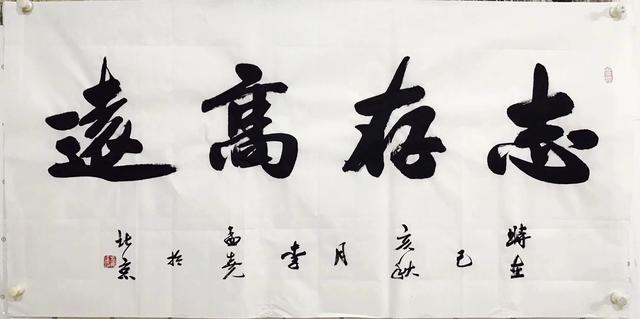 志存高遠
時在己亥秋月李孟尧於北京